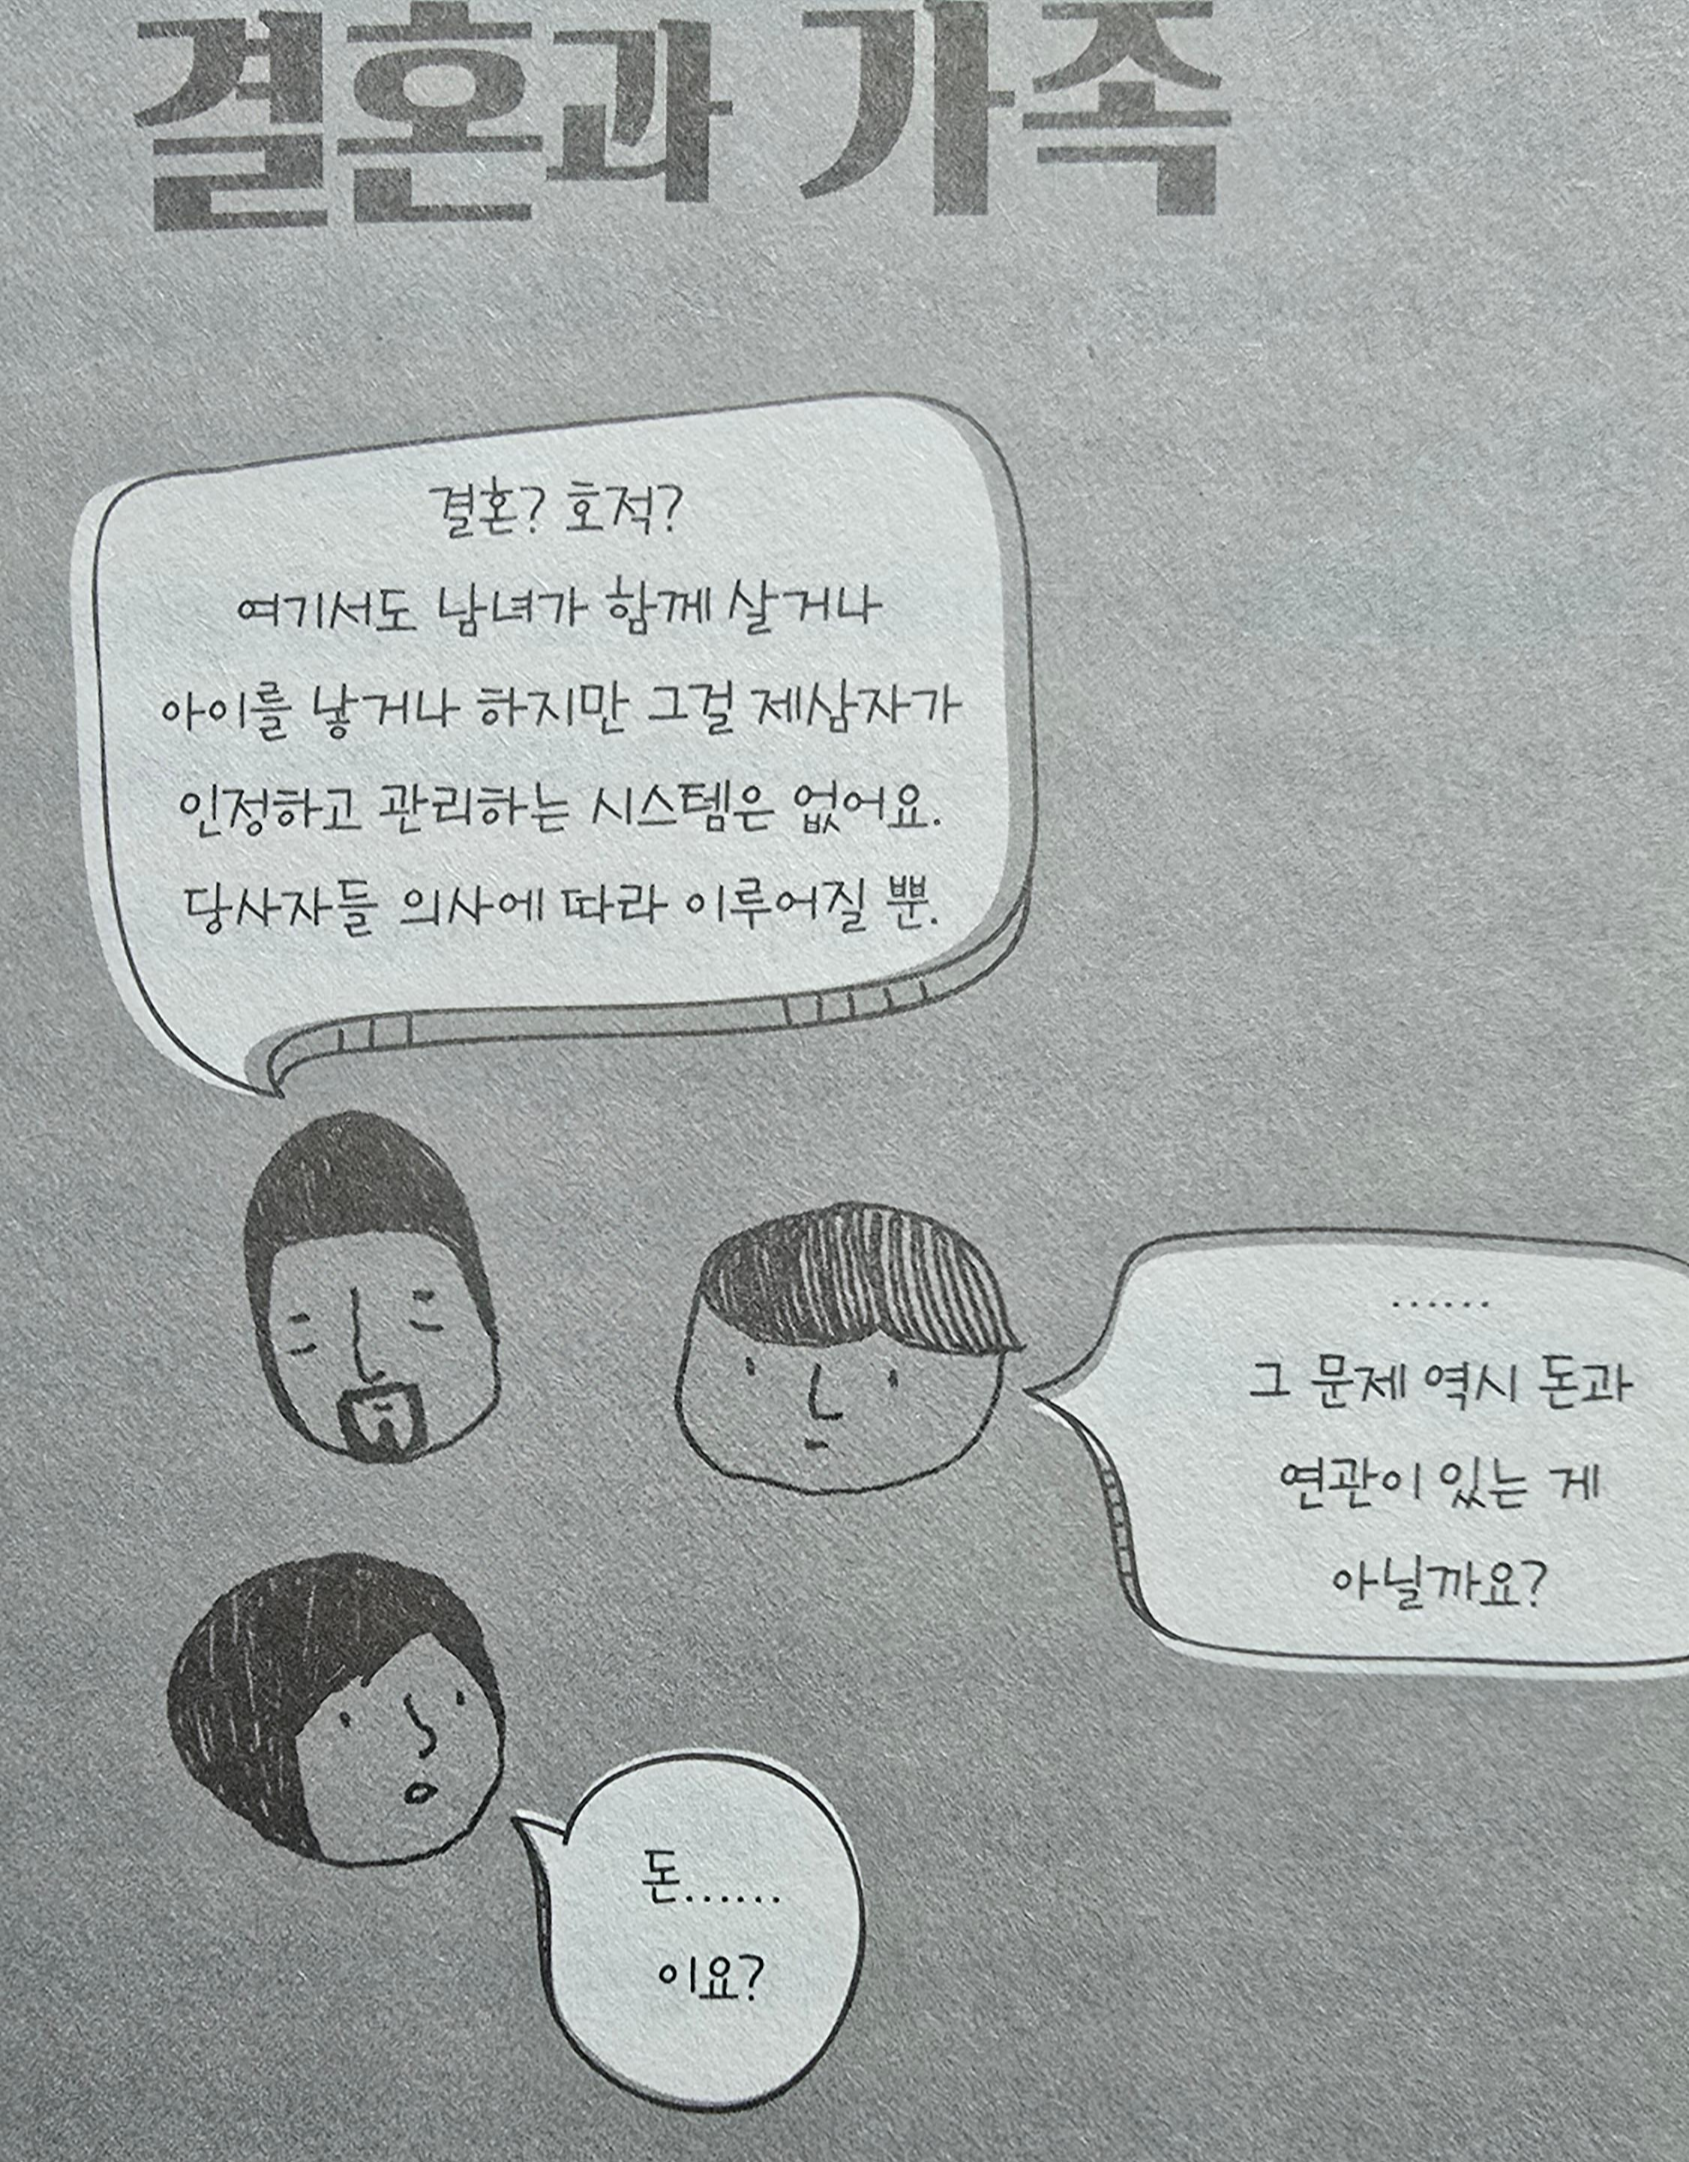 결혼과 가족
결혼? 호적?
여기서도 남녀가 함께 살거나
아이를 낳거나 하지만 그걸 제삼자가
인정하고 관리하는 시스템은 없어요.
당사자들 의사에 따라 이루어질 뿐.
……
그 문제 역시 돈과
연관이 있는 게
아닐까요?
돈……
이요?